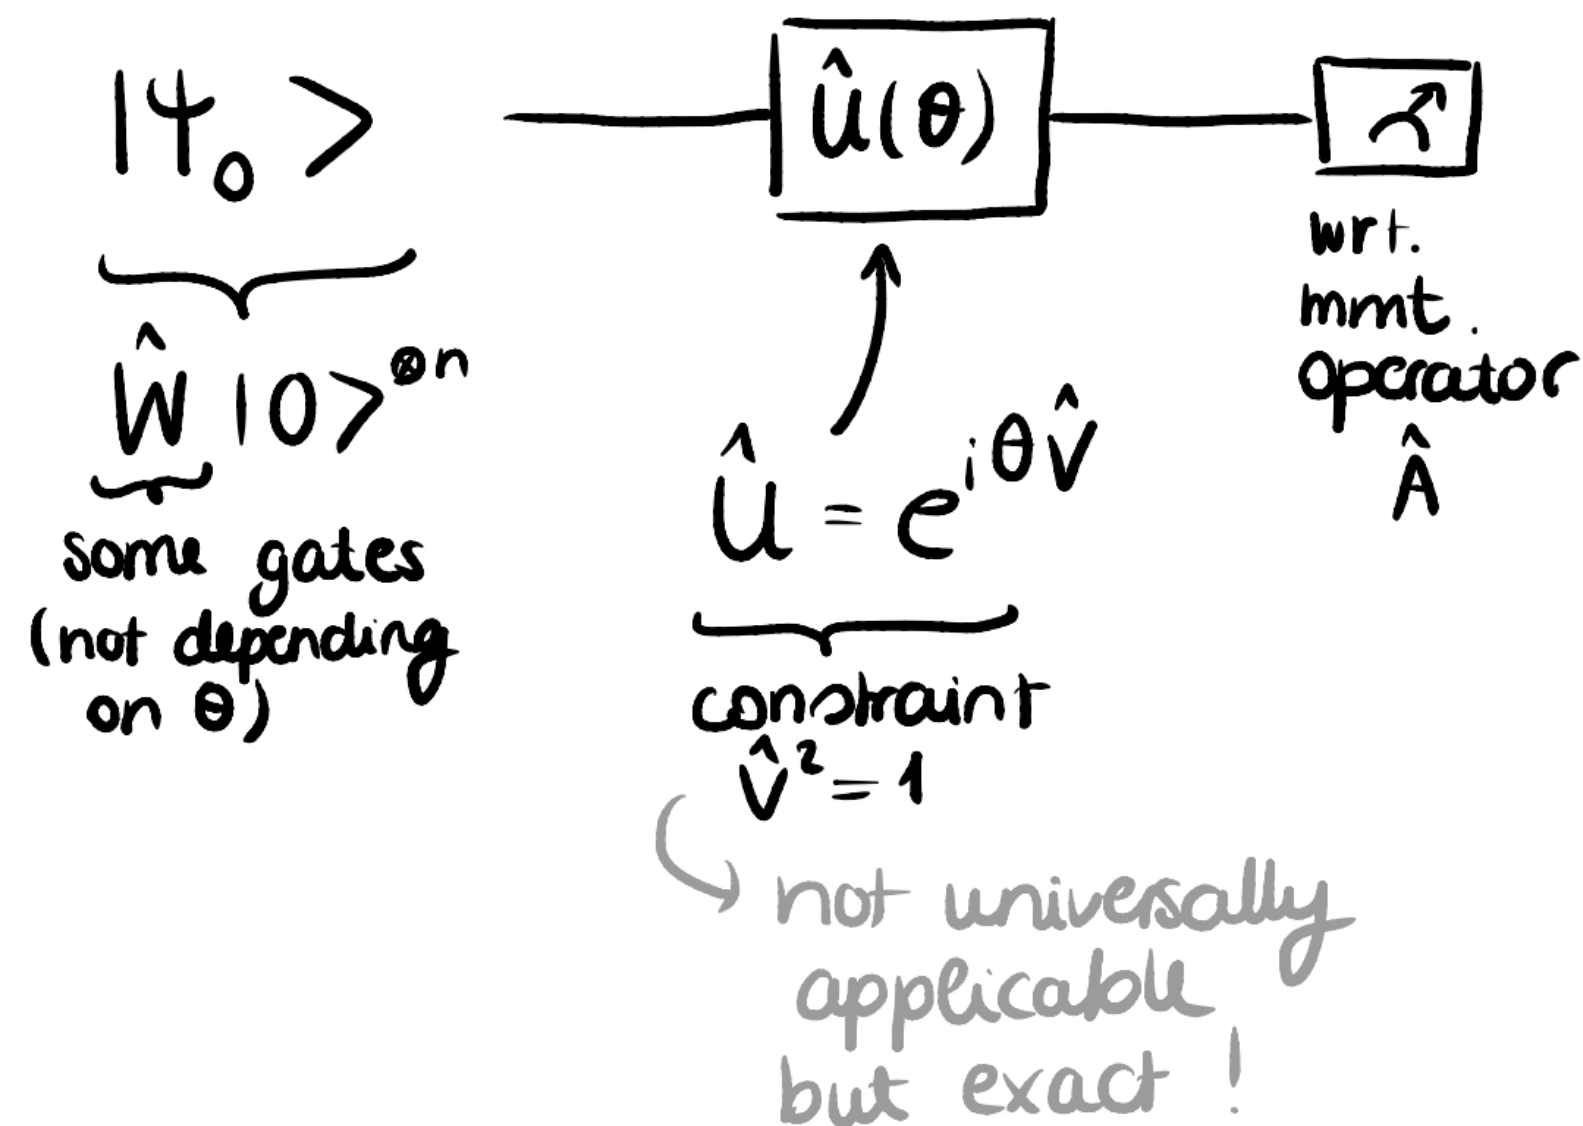 |ψ₀>
Û(θ)
Ŵ|0>^⊗n
some gates
(not depending
on θ)
Û = e^{iθV̂}
constraint
V̂² = 1
not universally
applicable
but exact !
wrt.
mmt.
operator
Â